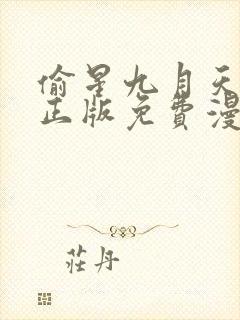 偷星九月天
正版免費漫
莊丹